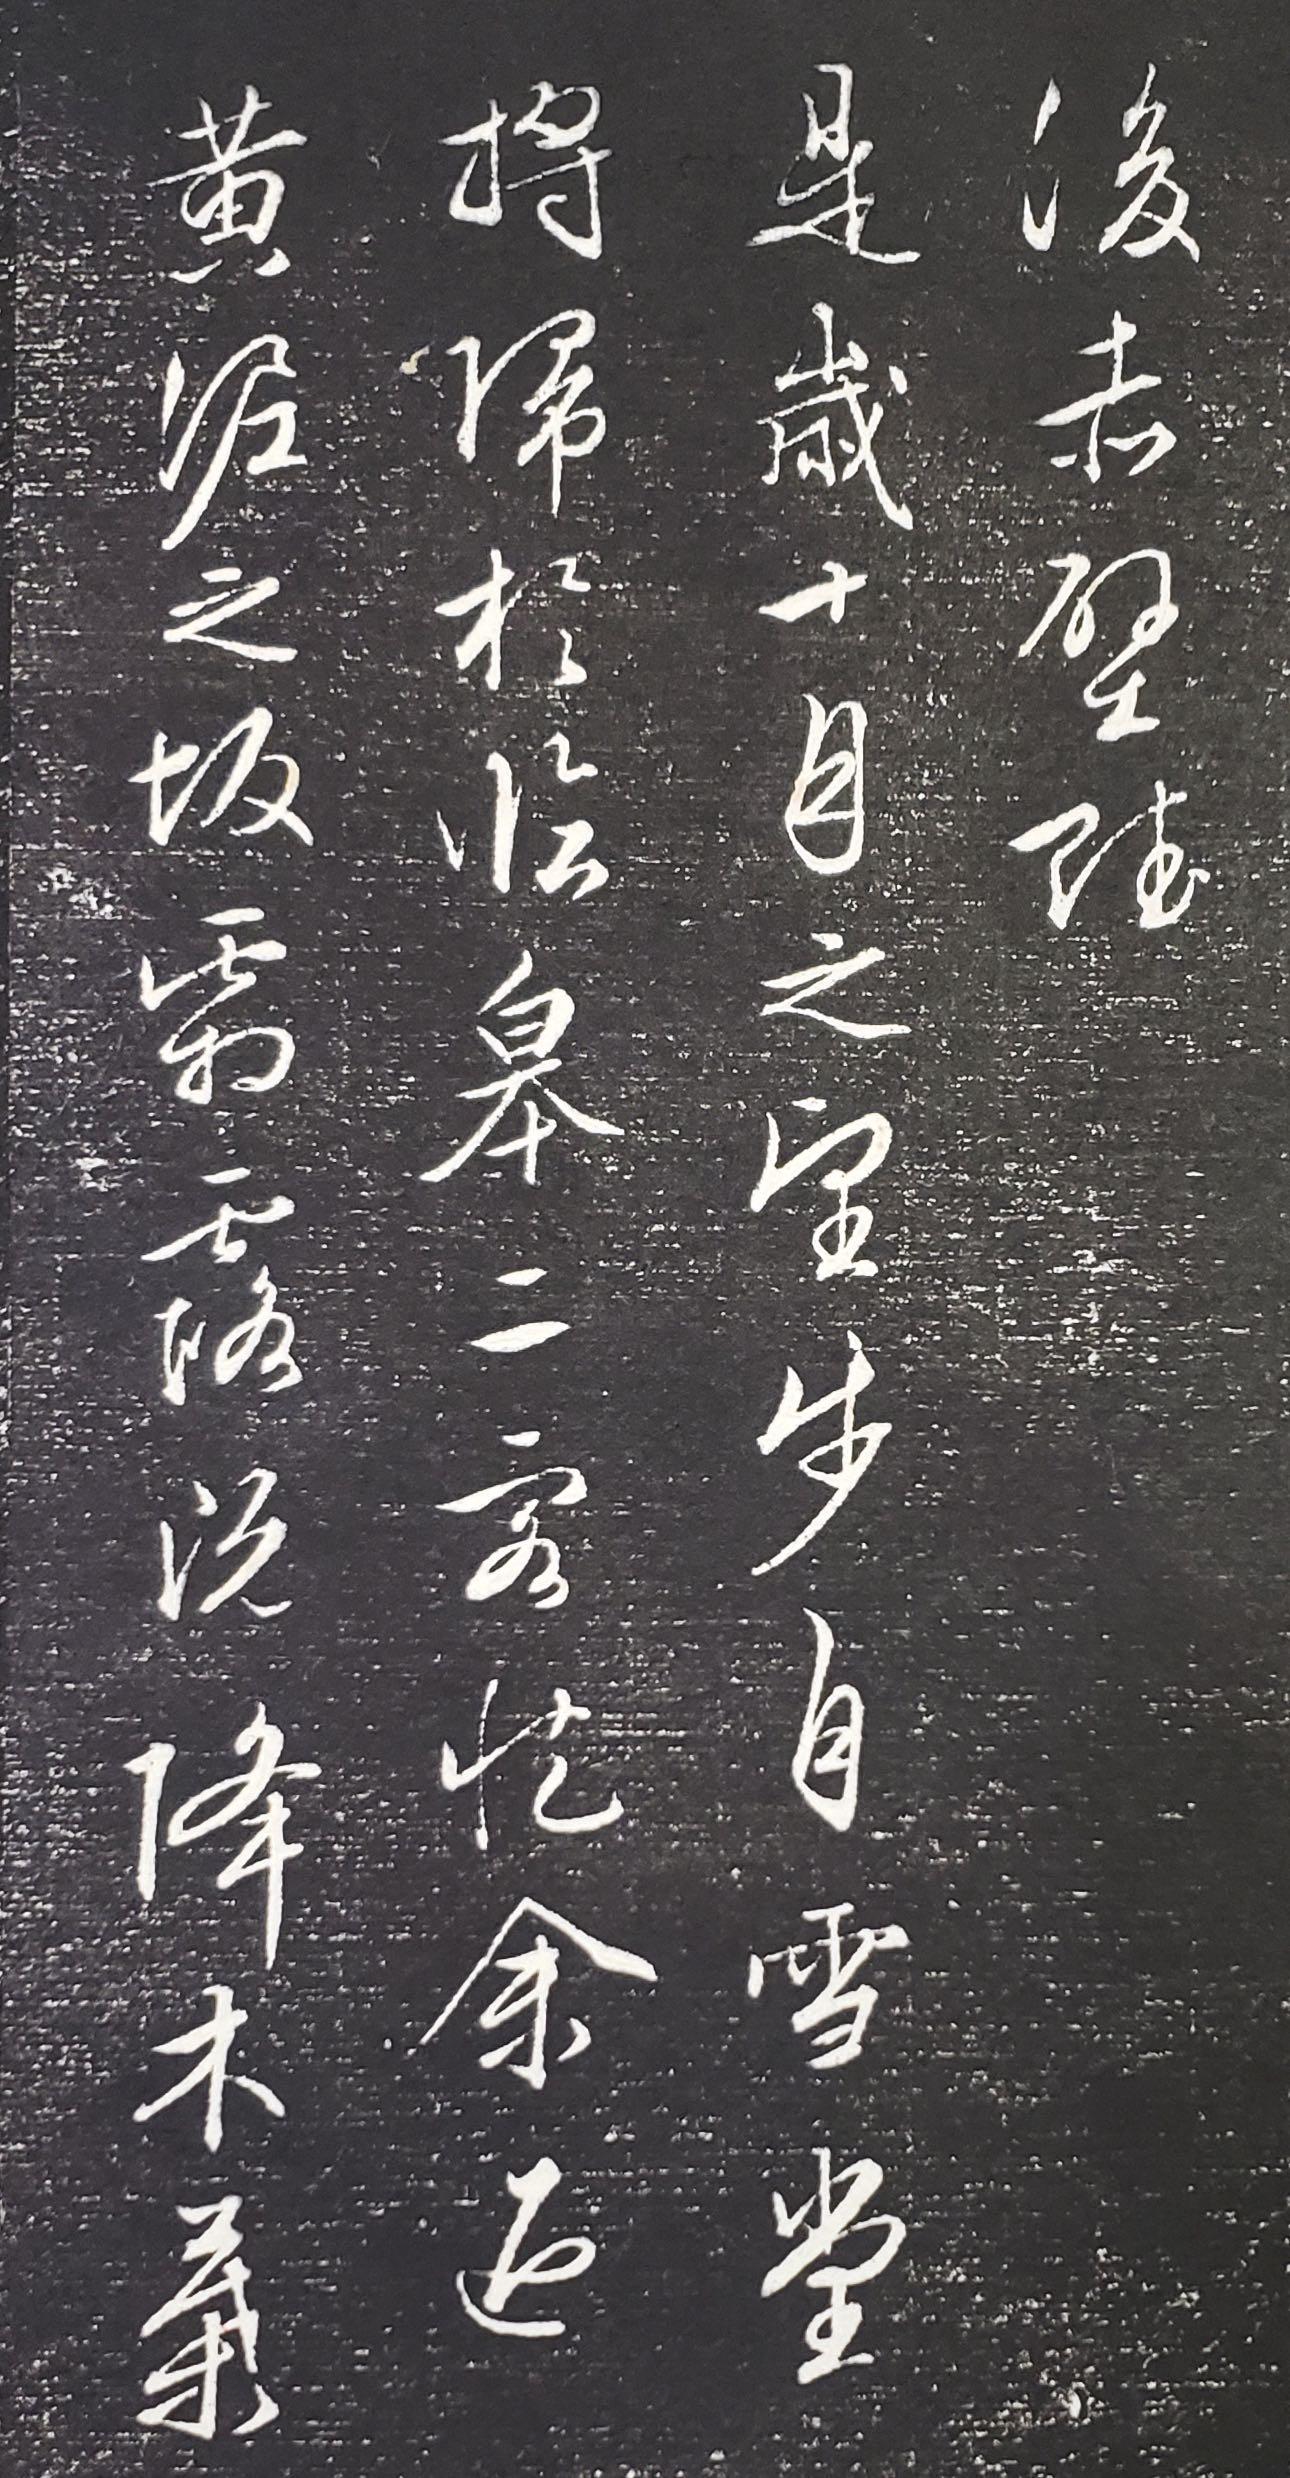 後赤壁賦
是歲十月之望步自雪堂
將歸於臨皋二客從余過
黃泥之坂霜露既降木葉